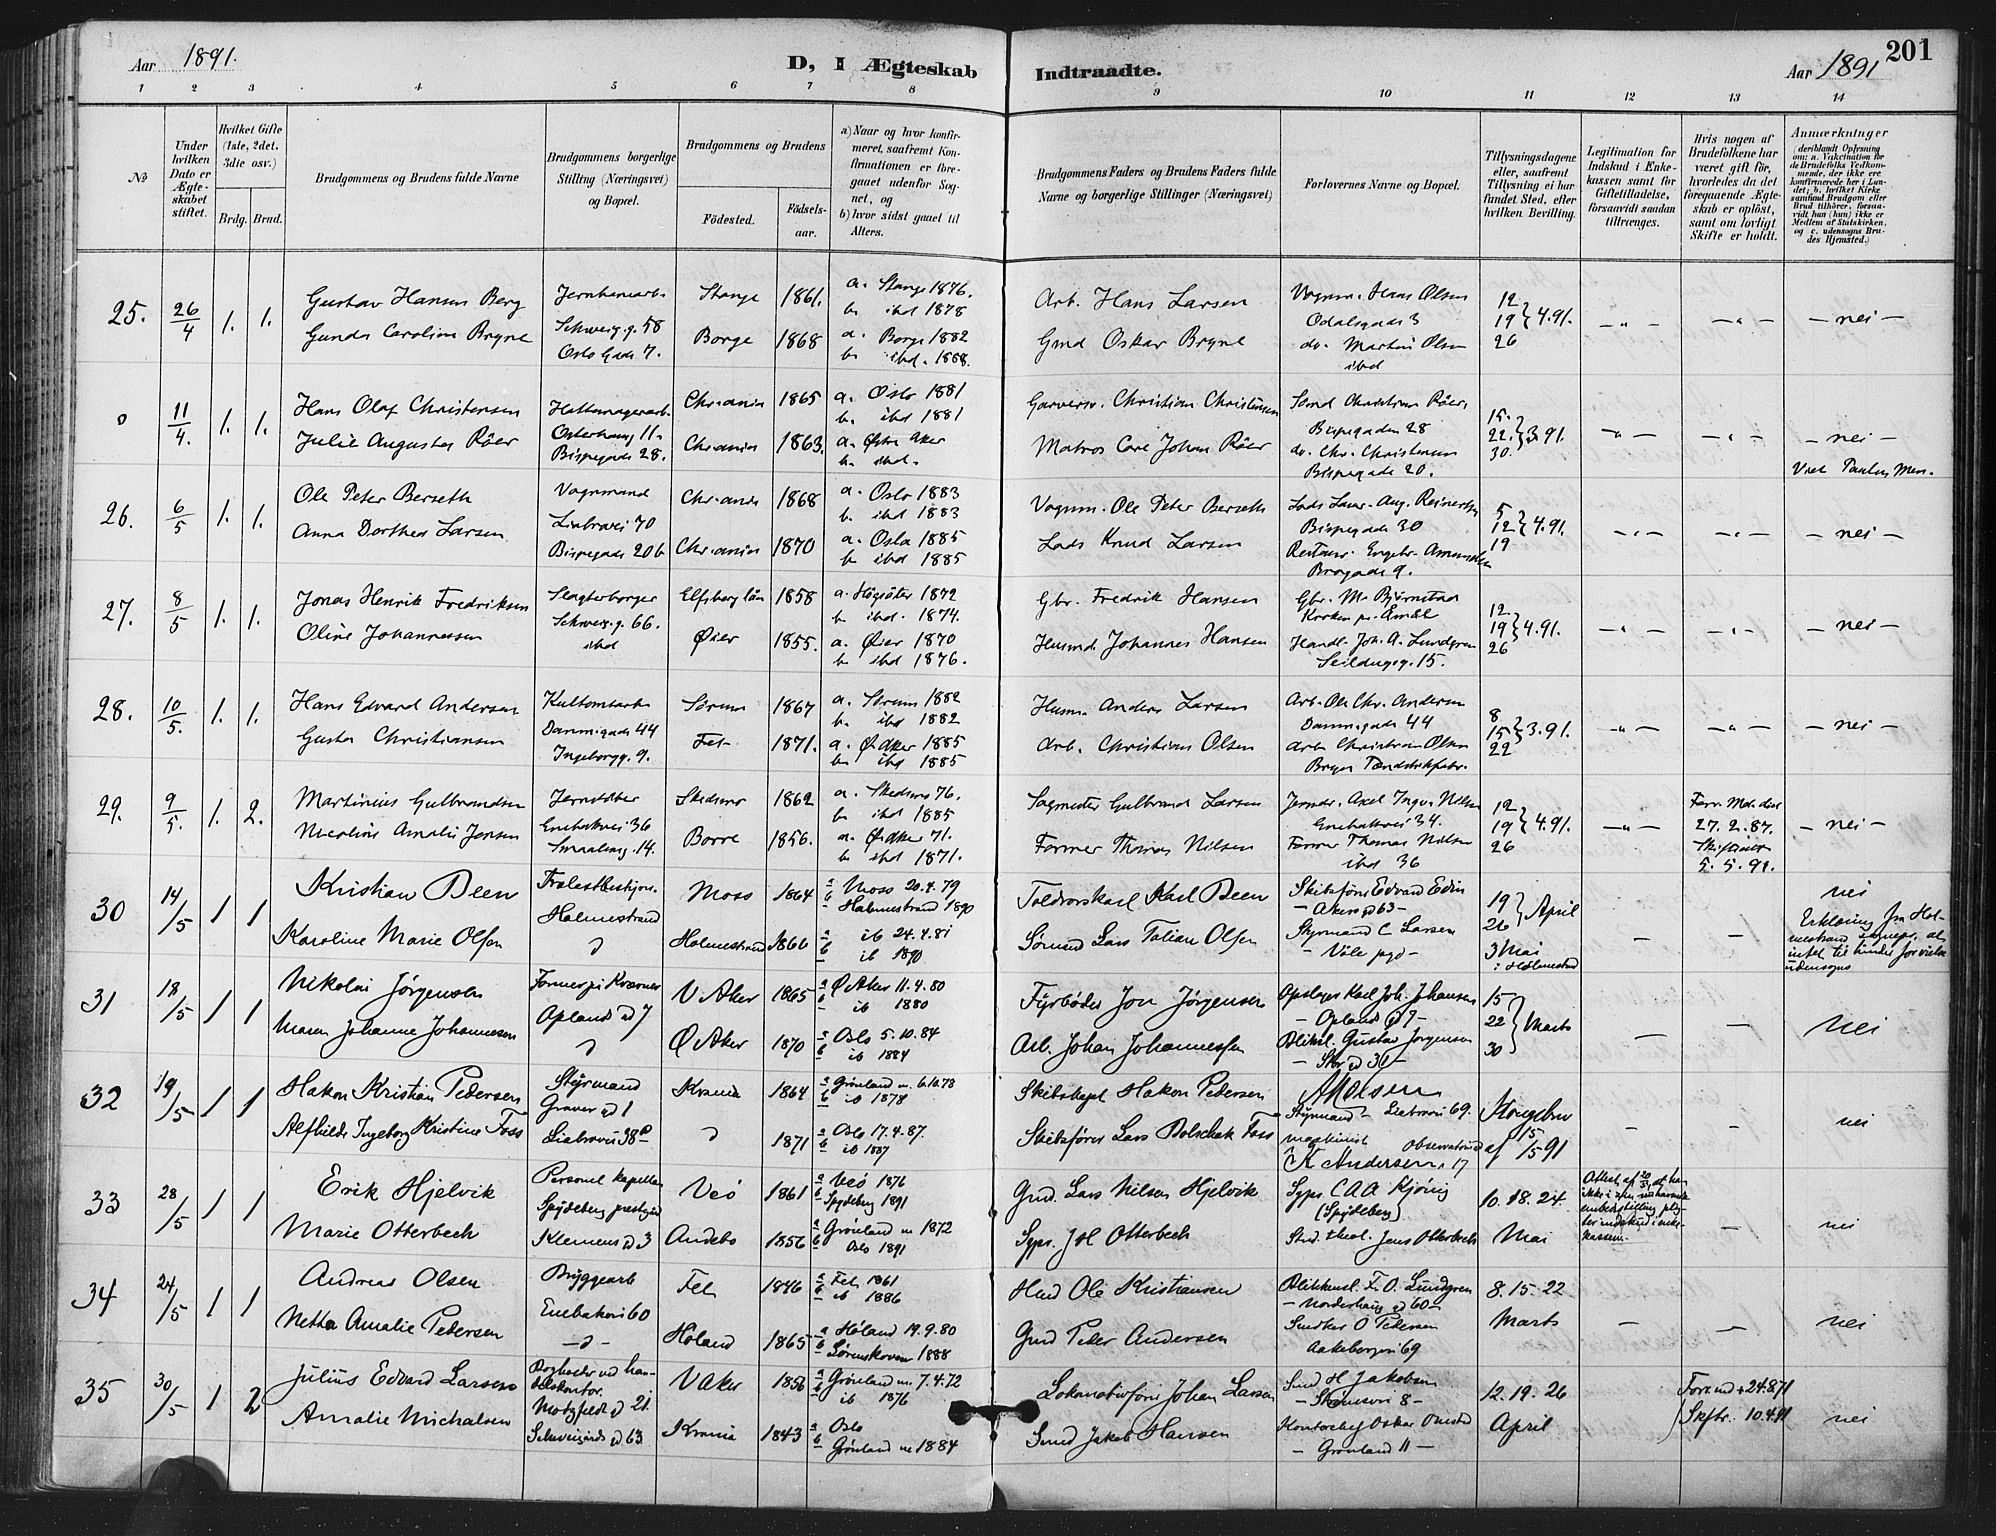 Aar 1891.
D, I Ægteskab Indtraadte.
Aar 1891
201
1 2 3 4 5 6 7 8 9 10 11 12 13 14
No
Under hvilken Dato er Ægteskabet stiftet.
Hvilket Gifte (1ste, 2det, 3die osv.)
Brdg. Brud.
Brudgommens og Brudens fulde Navne
Brudgommens borgerlige Stilling (Næringsvei) og Bopæl.
Brudgommens og Brudens
Fødested. Fødselsaar.
a) Naar og hvor konfirmeret, saafremt Konfirmationen er foregaaet udenfor Sognet, og
b) hvor sidst gaaet til Alters.
Brudgommens Faders og Brudens Faders fulde Navne og borgerlige Stillinger (Næringsvei)
Forlovernes Navne og Bopæl.
Tillysningsdagene eller, saafremt Tillysning ei har fundet Sted, efter hvilken Bevilling.
Legitimation for Indskud i Enkekassen samt for Giftetilladelse, forsaavidt saadan tiltrænges.
Hvis nogen af Brudefolkene har været gift før, hvorledes da det foregaaende Ægteskab er opløst, samt om lovligt Skifte er holdt.
Anmærkninger (deriblandt Oplysning om: a. Vakcination for de Brudefolks Vedkommende, der ikke ere konfirmerede her i Landet; b. hvilket Kirkesamfund Brudgom eller Brud tilhører, forsaavidt han (hun) ikke er Medlem af Statskirken, og c. udensogns Brudes Hjemsted.)
25. 26/4 1. 1.
Gustav Hansen Berg
Gunda Caroline Bryne
Schweig.g. 58
Oslo Gade 7.
Stange 1861.
Borge 1868
a. Stange 1876.
b. ibd 1878
a. Borge 1882
b. ibd. 1888.
Arb. Hans Larsen
Gmd Oskar Bryne
Vognm. Hans Olsen
Odalsgade 3
do. Martin Olsen
ibd
12 19 26 } 4.91.
— nei —
0 11/4. 1. 1.
Hans Olaf Christensen
Julie Augusta Röer
Hattemagerarb.
Osterhaug 11.
Bispegade 28.
Chr.ania 1865
Chr.ania 1863.
a. Oslo 1881
b. ibd 1881
a. Østre Aker
b. ibd.
Garversv. Christian Christensen
Matros Carl Johan Röer
Smed Christian Röer,
Bispegaden 28
do. Chr. Christensen
Bispegade 20.
15. 22. 30. } 3.91.
— nei —
Viet Paulus Men.
26. 6/5 1. 1.
Ole Peter Berseth
Anna Dorthea Larsen
Vognmand
Liabrovei 70
Bispegade 20b
Chr.ania 1868
Chr.ania 1870
a. Oslo 1883
b. ibd 1883
a. Oslo 1885
b. ibd 1885
Vognm. Ole Peter Berseth
Lods Knud Larsen
Bispegade 30
5 12 19 } 4.91.
— nei —
27. 8/5 1. 1.
Jonas Henrik Fredriksen
Oline Johannessen
Slagterborger
Schweig.g. 66.
ibd
Elfsborg län 1858
Øier 1855.
a. Högsäter 1872
b. ibd. 1874.
a. Øier 1870
b. ibd 1876.
Gbr. Fredrik Hansen
Husmd. Johannes Hansen
Gbr. M. Bjørnstad
Handl. Joh. A. Lundgren
Seildugsg. 15.
12. 19 26 } 4.91.
— nei —
28. 10/5. 1. 1.
Hans Edvard Andersen
Gusta Christiansen
Kultomtarb.
Danmigade 44
Ingeborgg. 9.
Sørum 1867
Fet 1871.
a. Sørum 1882
b. ibd 1882
a. Ø. Aker 1885
b. ibd 1885
Husm. Anders Larsen
Arb. Christian Olsen
Arb. Ole Chr. Andersen
Danmigade 44
Arb Christian Olsen
Bryn Tændstikfabr.
8 15 22 } 3.91.
— nei —
29. 9/5. 1. 2.
Martinius Gulbrandsen
Nicoline Amalie Jensen
Enebakvei 36
Smaalensg. 14.
Skedsmo 1862
Borre 1856.
a. Skedsmo 76.
b. ibd 1885
a. Ø. Aker 71.
b. ibd 1871.
Sagmester Gulbrand Larsen
Former Thomas Nilsen
Jernstb. Axel Ingv. Nilsen
Enebakvei 34.
Former Thomas Nilsen
ibd 36
12 19 26 } 4.91.
27. 2. 87.
5. 5. 91.
— nei —
30 14/5 1 1
Kristian Been
Karoline Marie Olsen
Holmestrand
Moss 1864
Holmestrand 1866
a Moss 20.4.79
b Holmestrand 1890
a ib 24.4.81
b ib 1890
Toldrorskarl Karl Been
Sømand Lars Tolian Olsen
Skibsfører Edvard Edin
— Akersgd 63 —
Styrmand C. Larsen
— Våle pgd —
19 26 } April
3 Mai
i Holmestrand
nei
Erklæring fra Holmestrand sognepr. at intet til hinder for vielse udensogns
31 18/5 1 1
Nikolai Jørgensen
Maren Johanne Johannesen
Former pr Kværner
Oplandsgd 7
V. Aker 1865
Ø Aker 1870
a Ø Aker 11.4.80
b ib 1880
a Oslo 5.10.84
b ib 1884
Fyrbøder Jon Jørgensen
Arb. Johan Johannessen
Opslager Karl Joh. Johansen
— Oplandsgd 7 —
Bliksl. Gustav Jørgensen
15 22 30 } Marts
nei
32 19/5 1 1
Hakon Kristian Pedersen
Alfhilde Ingeborg Kristine Foss
Styrmand
Gravergd 1
Liabrovei 38b
Krania 1864
1871
a Grønland m. 6.10.78
b ib 1878
a Oslo 17.4.87.
b ib 1887
Skibskapt Hakon Pedersen
Skibsfører Lars Bolschak Foss
Styrmand — Liabrovei 69.
maskinist
K Andersen 17
Kongebrev af 15/5 91
nei
33 28/5 1 1
Erik Hjelvik
Marie Otterbech
Personel kapellan
Spydeberg prestegjd
Klemensgd 3
Veö 1861
Andebo 1856
a Veö 1876
b Spydeberg 1891
a Grønland m 1872
b Oslo 1891
Gmd. Lars Nilsen Hjelvik
Sgpr. J H Otterbech
Sgpr C A A Kjönig
(Spydeberg)
Stud. theol. Jens Otterbech
10. 18. 24.
Mai
nei
34 24/5 1 1
Andreas Olsen
Netta Amalie Pedersen
Bryggearb
Enebakvei 60
Fet 1846
Høland 1865
a Fet 1861
b ib 1886
a Høland 19.9.80
b Sørumskoven 1888
Hmd Ole Kristiansen
Gmd Peter Andersen
Blikkensl. F. O. Lundgren
— Norderhaugsgd 60 —
Snedker O Pedersen
Aakebergvei 69
8. 15. 22
Marts
nei
35 30/5 1 2
Julius Edvard Larsen
Amalie Michalsen
Bogholder ved handelskontor.
Motzfeldtsgd 21.
Schweigårdsgd 63
V Aker 1856
Krania 1843
a Grønland m. 7.4.72
b ib 1876
a Oslo
b Grønland m 1884
Lokomotivfører Johan Larsen
Smed Jakob Hansen
Smed H Jakobsen
Kontorchef Oskar Omsted
— Grønland 11 —
12. 19. 26
April
Forr. md + 24.8.71
Skftbr. 10.4.91
nei